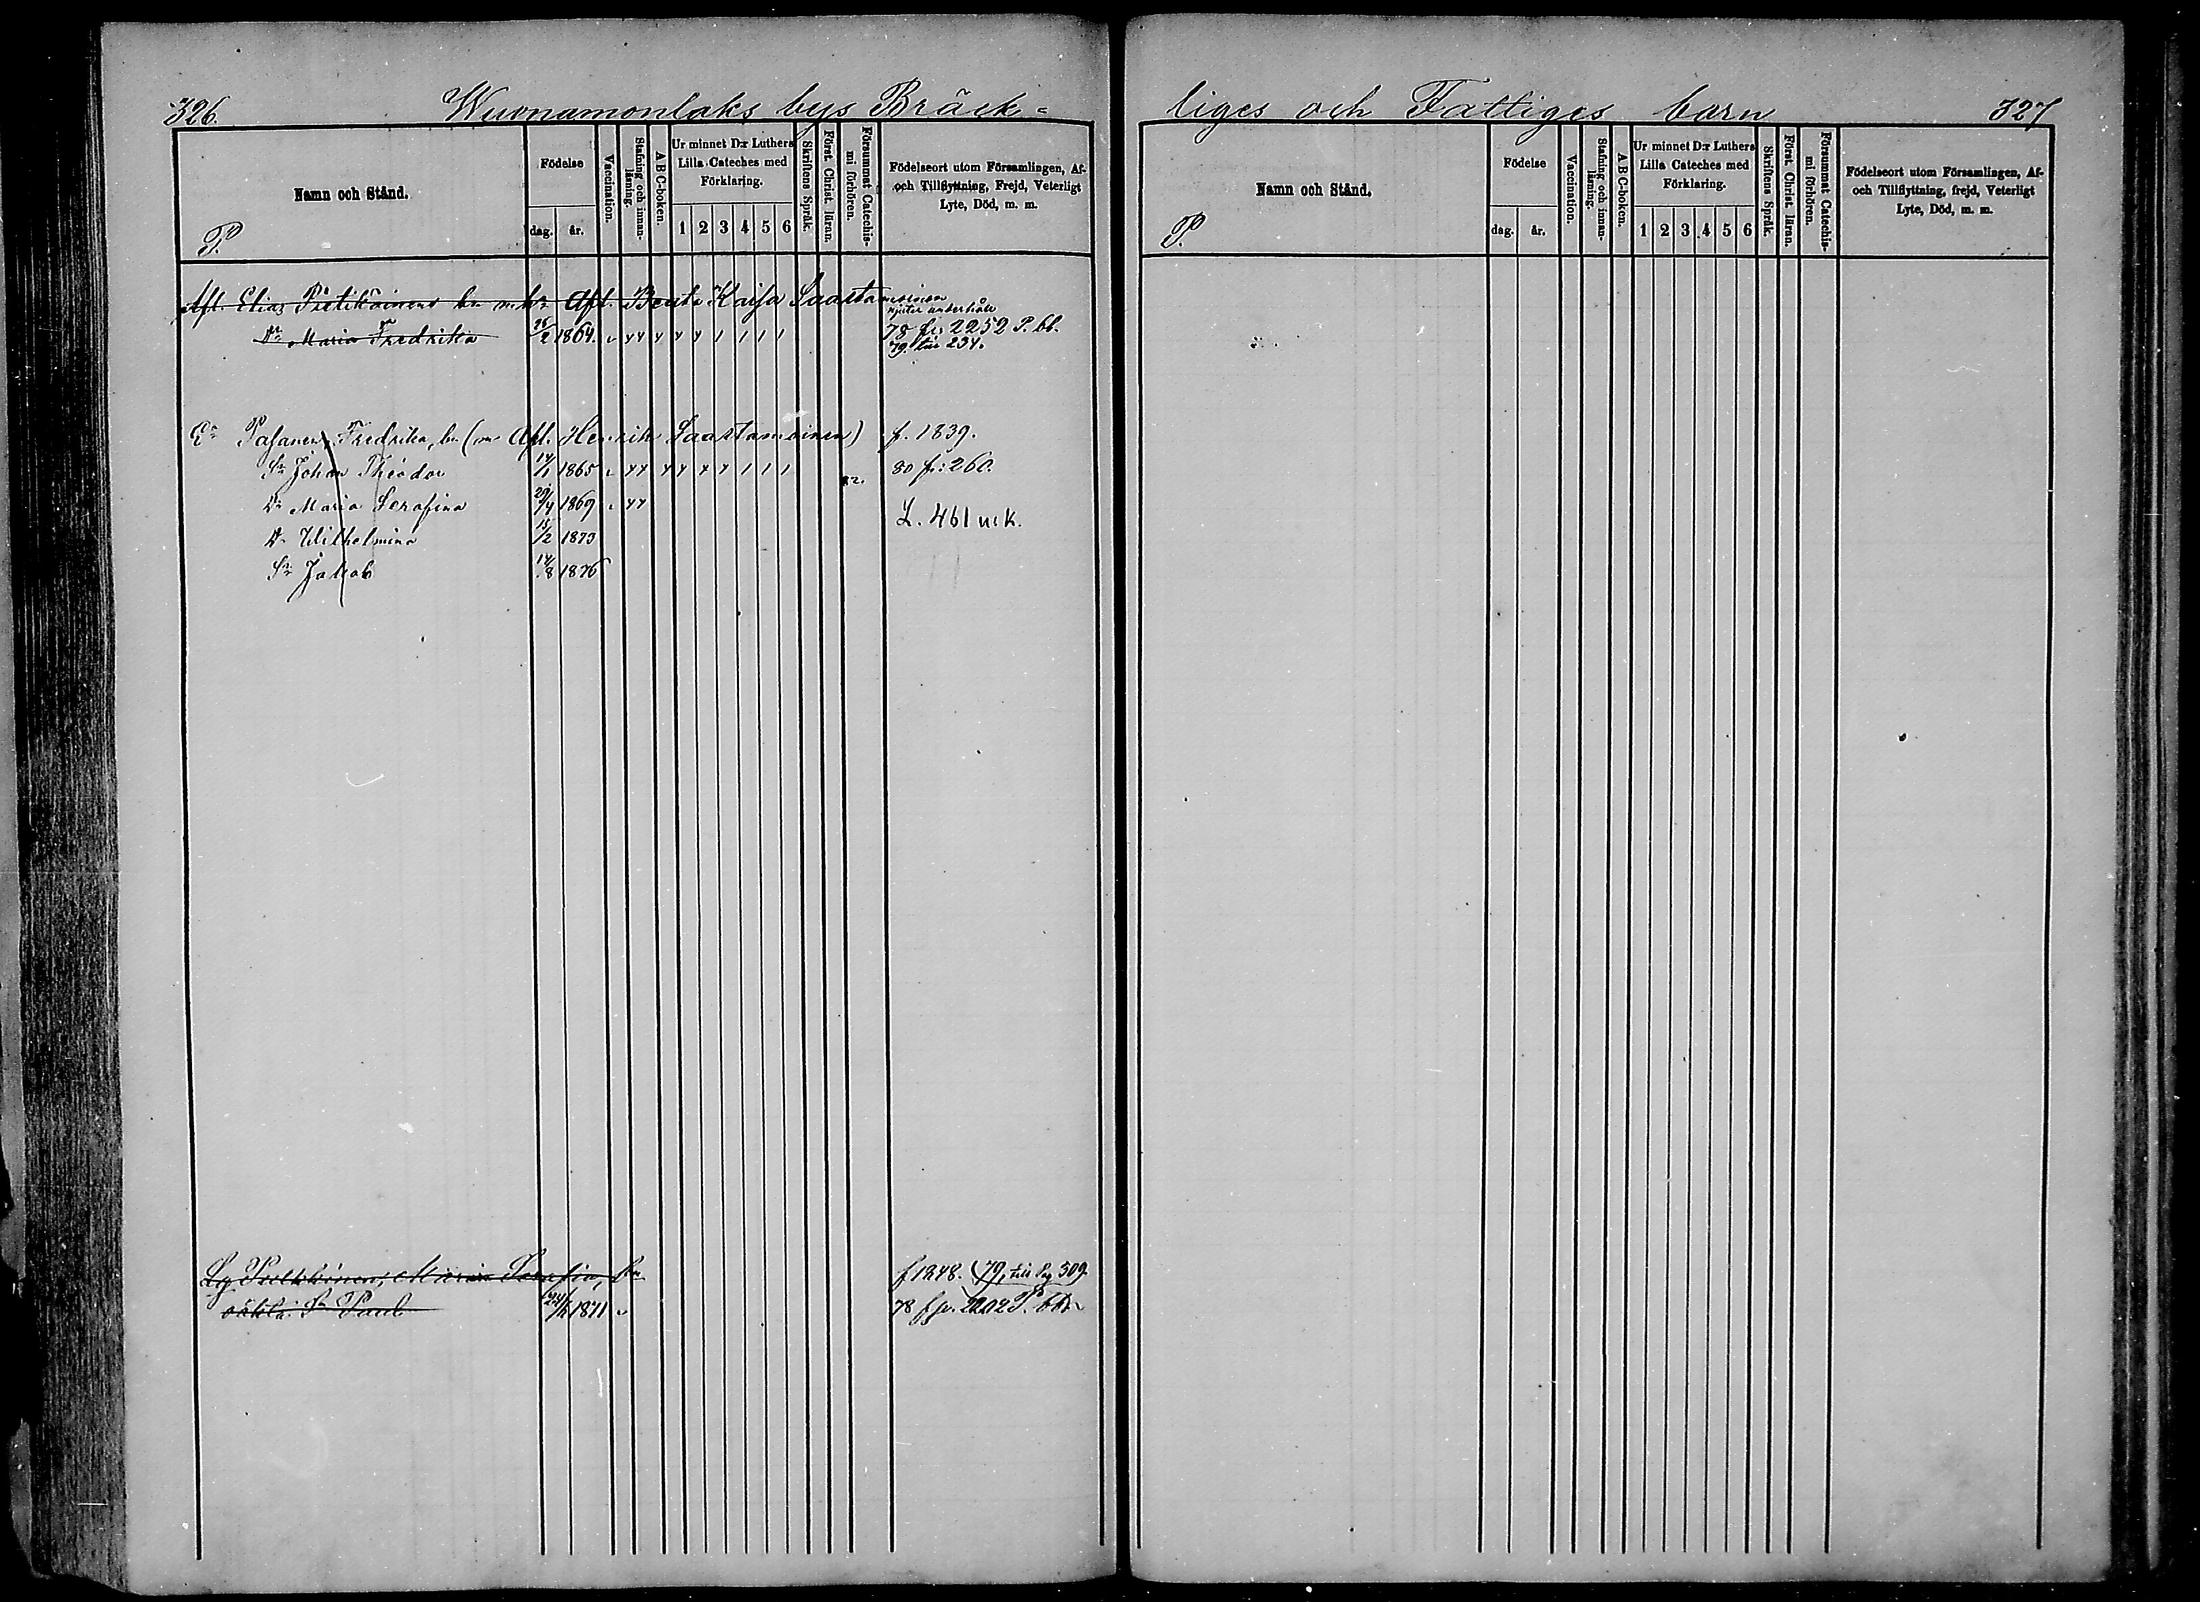 326. Wuonamonlaks bys Bräck=
Namn och Stånd.
P.
Födelse
dag. år.
Vaccination.
Stafning och innan-läsning.
A B C-boken.
Ur minnet D:r Luthers Lilla Cateches med Förklaring.
1 2 3 4 5 6
Skriftens Språk.
Först. Christ. läran.
Försummat Catechis-mi förhören.
Födelseort utom Församlingen, Af- och Tillflyttning, Frejd, Veterligt Lyte, Död, m. m.
Afl. Elias Pietikäinens Afl. Beata Kaisa Saastamoinen
njuter underhåll
Dr Maria Fredrika 26/2 1864. 78 fr: 2252 P. bb.
79. till 234.
Pasanen, Fredrika, hu (m Afl. Henrik Saastamoinen) f. 1839.
Sn Johan Theodor 14/1 1865 80 fr: 260.
82.
Dr Maria Serafina 29/4 1869
L. 461 u.k.
Dr Wilhelmina 15/2 1873
Sn Jakob 14/8 1876
Lg Pietikäinen, Maria Serafia, f 1848. (79, till Pg 309.
oäkta Sn Paul 1871 78 fr. 2202 P. bb.
liges och Fattiges barn 327
Namn och Stånd.
P.
Födelse
dag. år.
Vaccination.
Stafning och innan-läsning.
A B C-boken.
Ur minnet D:r Luthers Lilla Cateches med Förklaring.
1 2 3 4 5 6
Skriftens Språk.
Först. Christ. läran.
Försummat Catechis-mi förhören.
Födelseort utom Församlingen, Af- och Tillflyttning, frejd, Veterligt Lyte, Död, m. m.